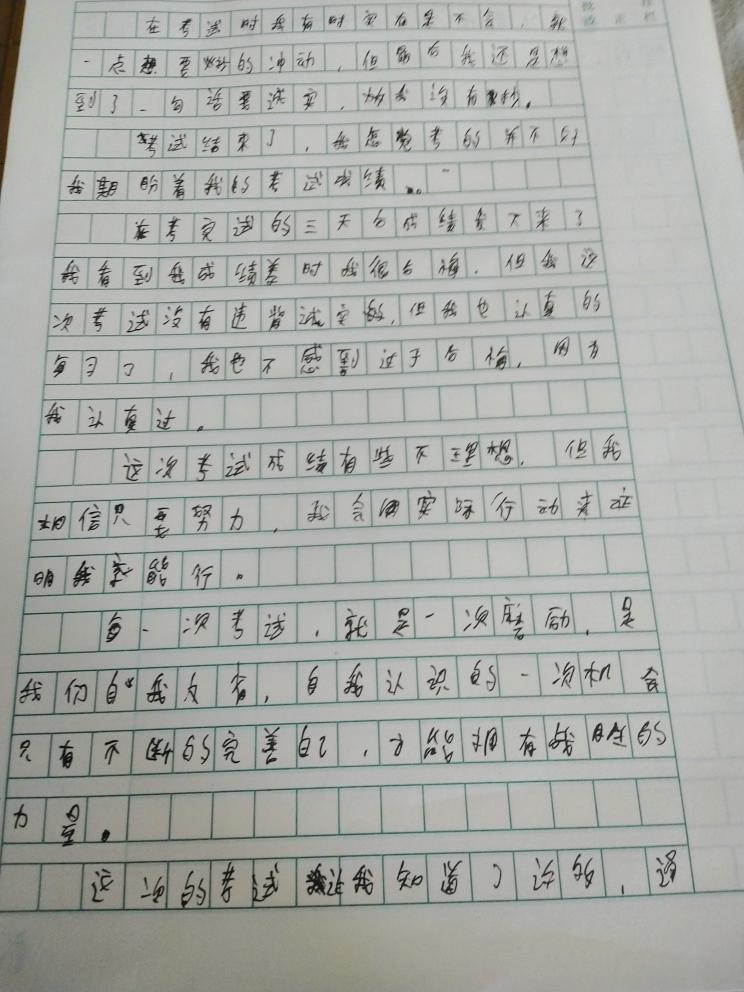 在考试时我有时实在是不会，我
一点想要抄的冲动，但最后我还是想
到了一句话要诚实，
考试结束了，我感觉考的并不好
我期盼着我的考试成绩。
在考完试的三天后成绩要下来了
我看到我成绩差时我很后悔，但我这
次考试没有违背诚实的，但我也认真的
复习了，我也不感到过于后悔，因为
我认真过。
这次考试成绩有些不理想，但我
相信只要努力，我会用实际行动来证
明我能行。
每一次考试，就是一次磨励，是
我们自我反省，自我认识的一次机会
只有不断的完善自己，才能拥有我自己的
力量。
这次的考试让我知道了许多，